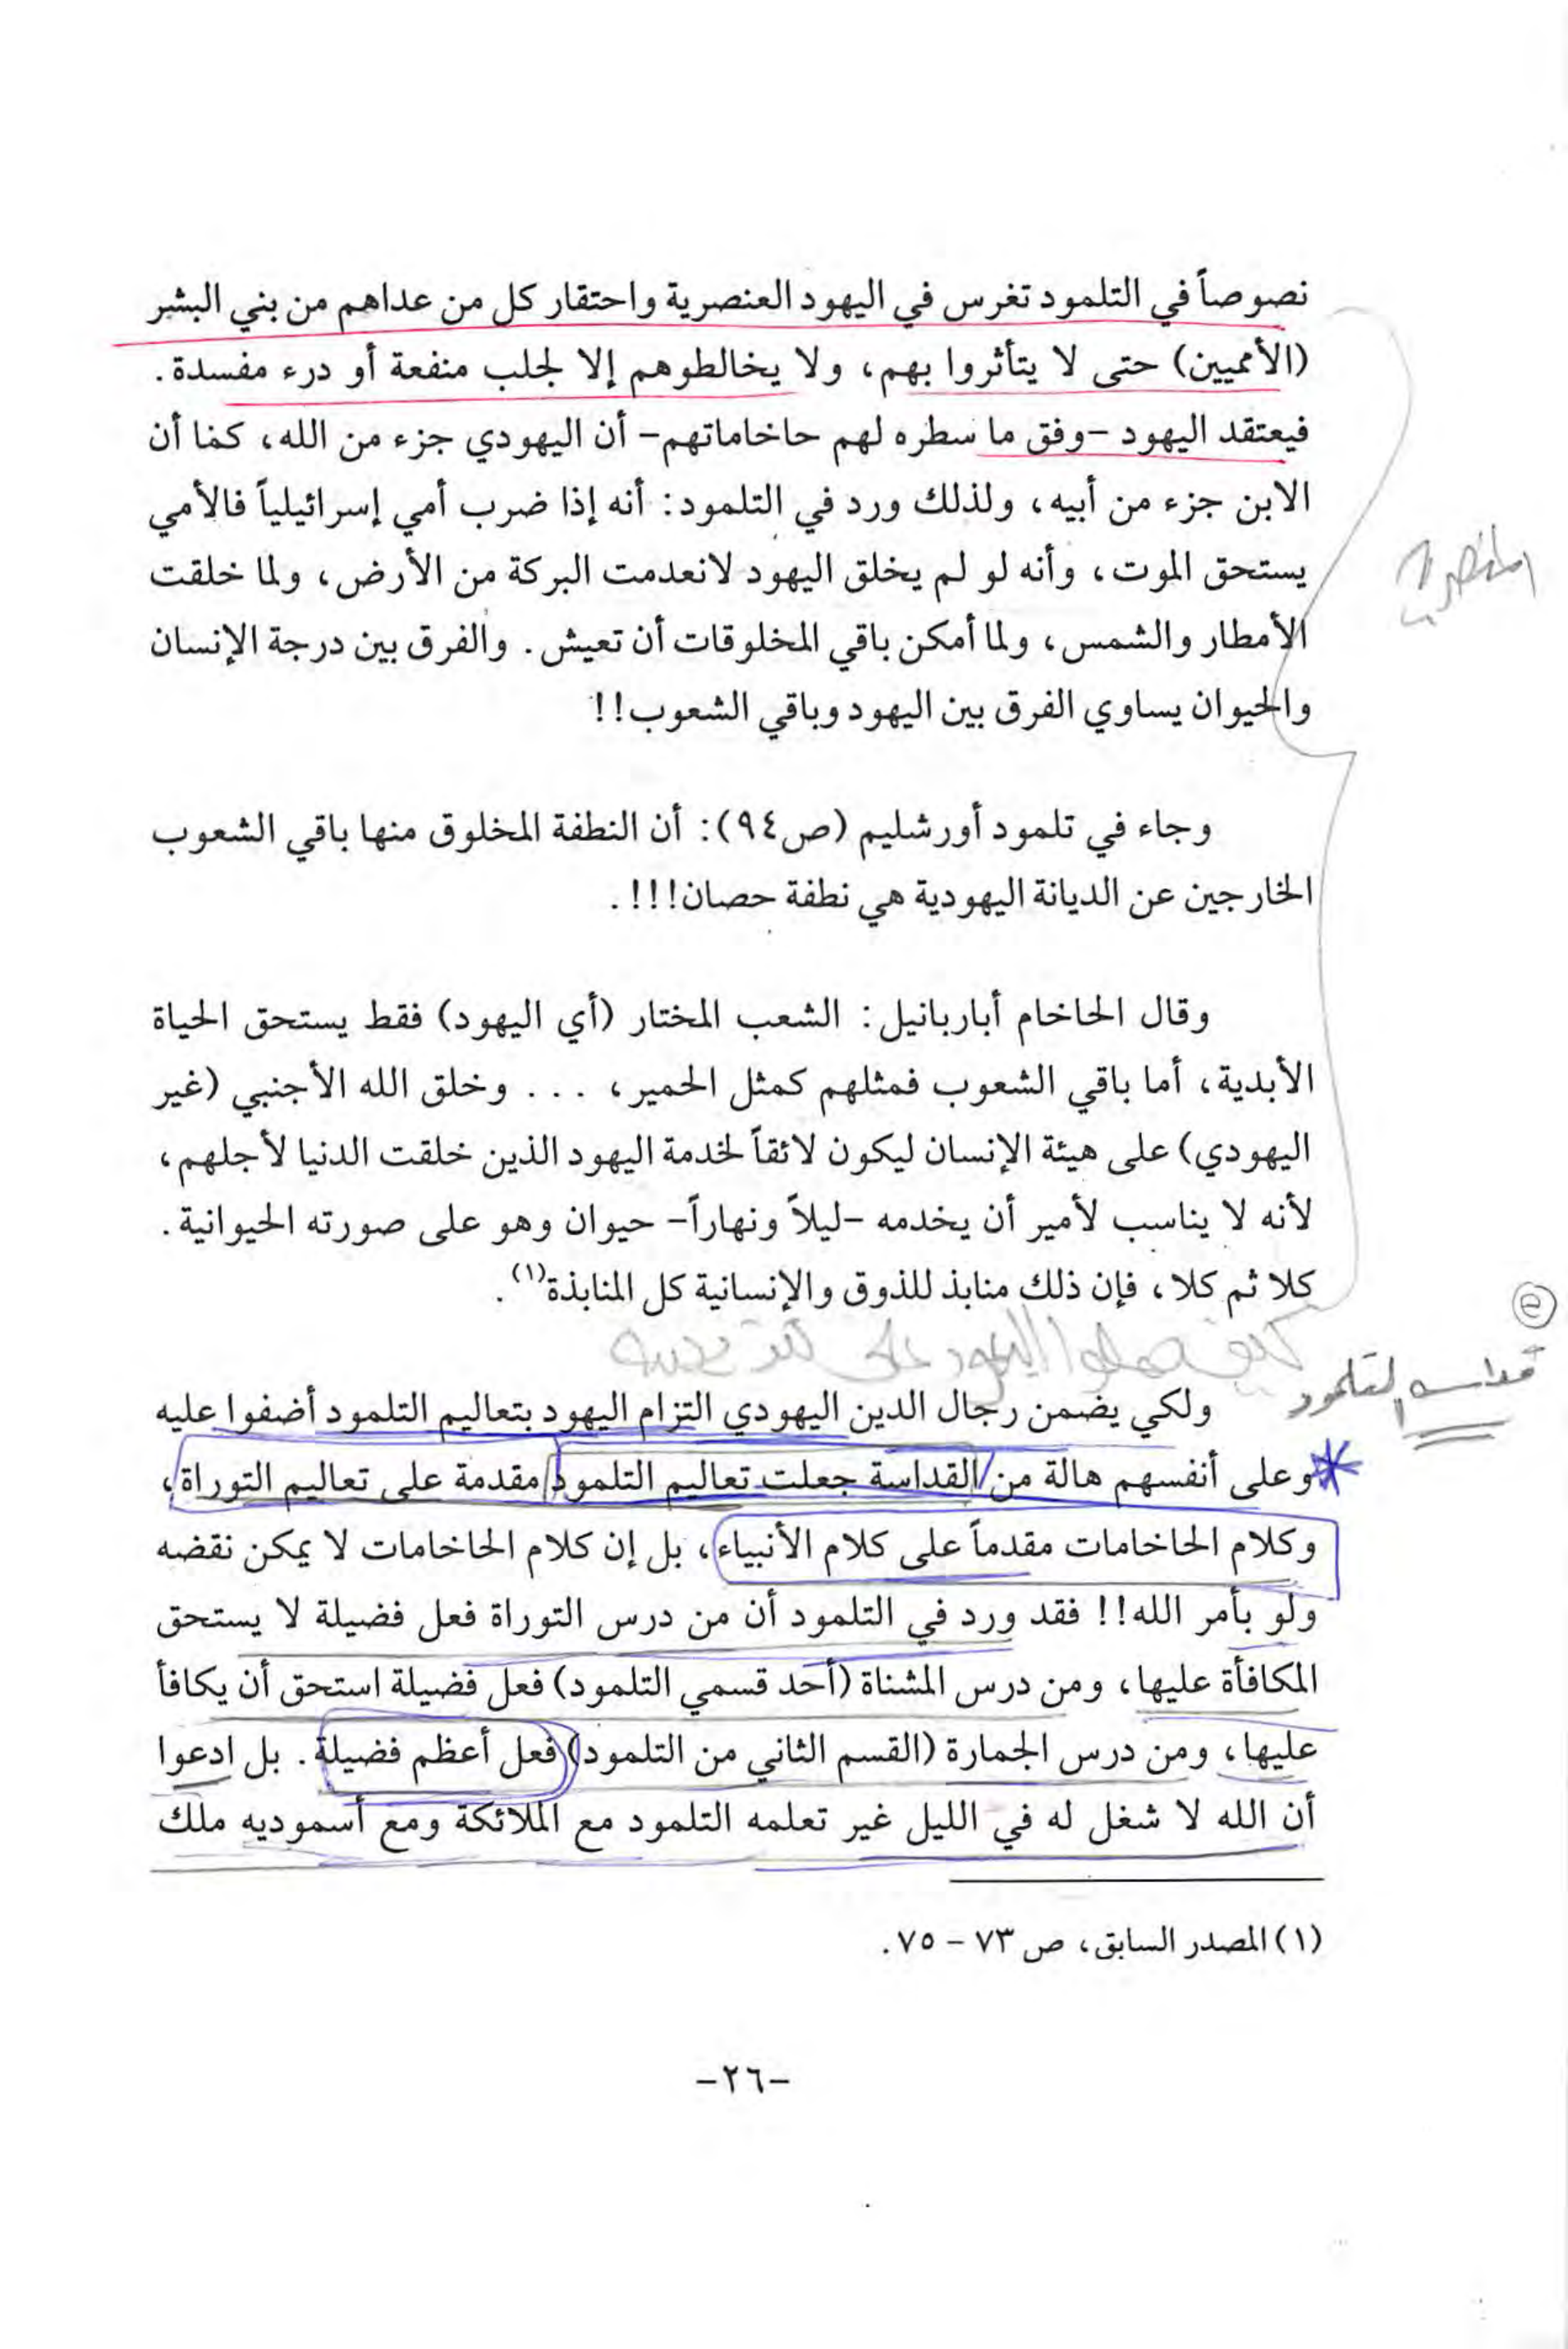 نصوصاً في التلمود تغرس في اليهود العنصرية واحتقار كل من عداهم من بني البشر
(الأمميين) حتى لا يتأثروا بهم، ولا يخالطوهم إلا لجلب منفعة أو درء مفسدة.
فيعتقد اليهود -وفق ما سطره لهم حاخاماتهم- أن اليهودي جزء من الله، كما أن
الابن جزء من أبيه، ولذلك ورد في التلمود: أنه إذا ضرب أمي إسرائيلياً فالأمي
يستحق الموت، وأنه لو لم يخلق اليهود لانعدمت البركة من الأرض، ولما خلقت
العنصرية
الأمطار والشمس، ولما أمكن باقي المخلوقات أن تعيش. والفرق بين درجة الإنسان
والحيوان يساوي الفرق بين اليهود وباقي الشعوب!!
وجاء في تلمود أورشليم (ص٩٤): أن النطفة المخلوق منها باقي الشعوب
الخارجين عن الديانة اليهودية هي نطفة حصان!!!.
وقال الحاخام أباربانيل: الشعب المختار (أي اليهود) فقط يستحق الحياة
الأبدية، أما باقي الشعوب فمثلهم كمثل الحمير، ... وخلق الله الأجنبي (غير
اليهودي) على هيئة الإنسان ليكون لائقاً لخدمة اليهود الذين خلقت الدنيا لأجلهم،
لأنه لا يناسب لأمير أن يخدمه -ليلاً ونهاراً- حيوان وهو على صورته الحيوانية.
كلا ثم كلا، فإن ذلك منابذ للذوق والإنسانية كل المنابذة(١).
كيف حملوا اليهود على
قداسة التلمود
ولكي يضمن رجال الدين اليهودي التزام اليهود بتعاليم التلمود أضفوا عليه
وعلى أنفسهم هالة من القداسة جعلت تعاليم التلمود مقدمة على تعاليم التوراة،
وكلام الحاخامات مقدماً على كلام الأنبياء، بل إن كلام الحاخامات لا يمكن نقضه
ولو بأمر الله!! فقد ورد في التلمود أن من درس التوراة فعل فضيلة لا يستحق
المكافأة عليها، ومن درس المشناة (أحد قسمي التلمود) فعل فضيلة استحق أن يكافأ
عليها، ومن درس الجمارة (القسم الثاني من التلمود) فعل أعظم فضيلة. بل ادعوا
أن الله لا شغل له في الليل غير تعلمه التلمود مع الملائكة ومع أسموديه ملك
(١) المصدر السابق، ص ٧٣ - ٧٥.
-٢٦-